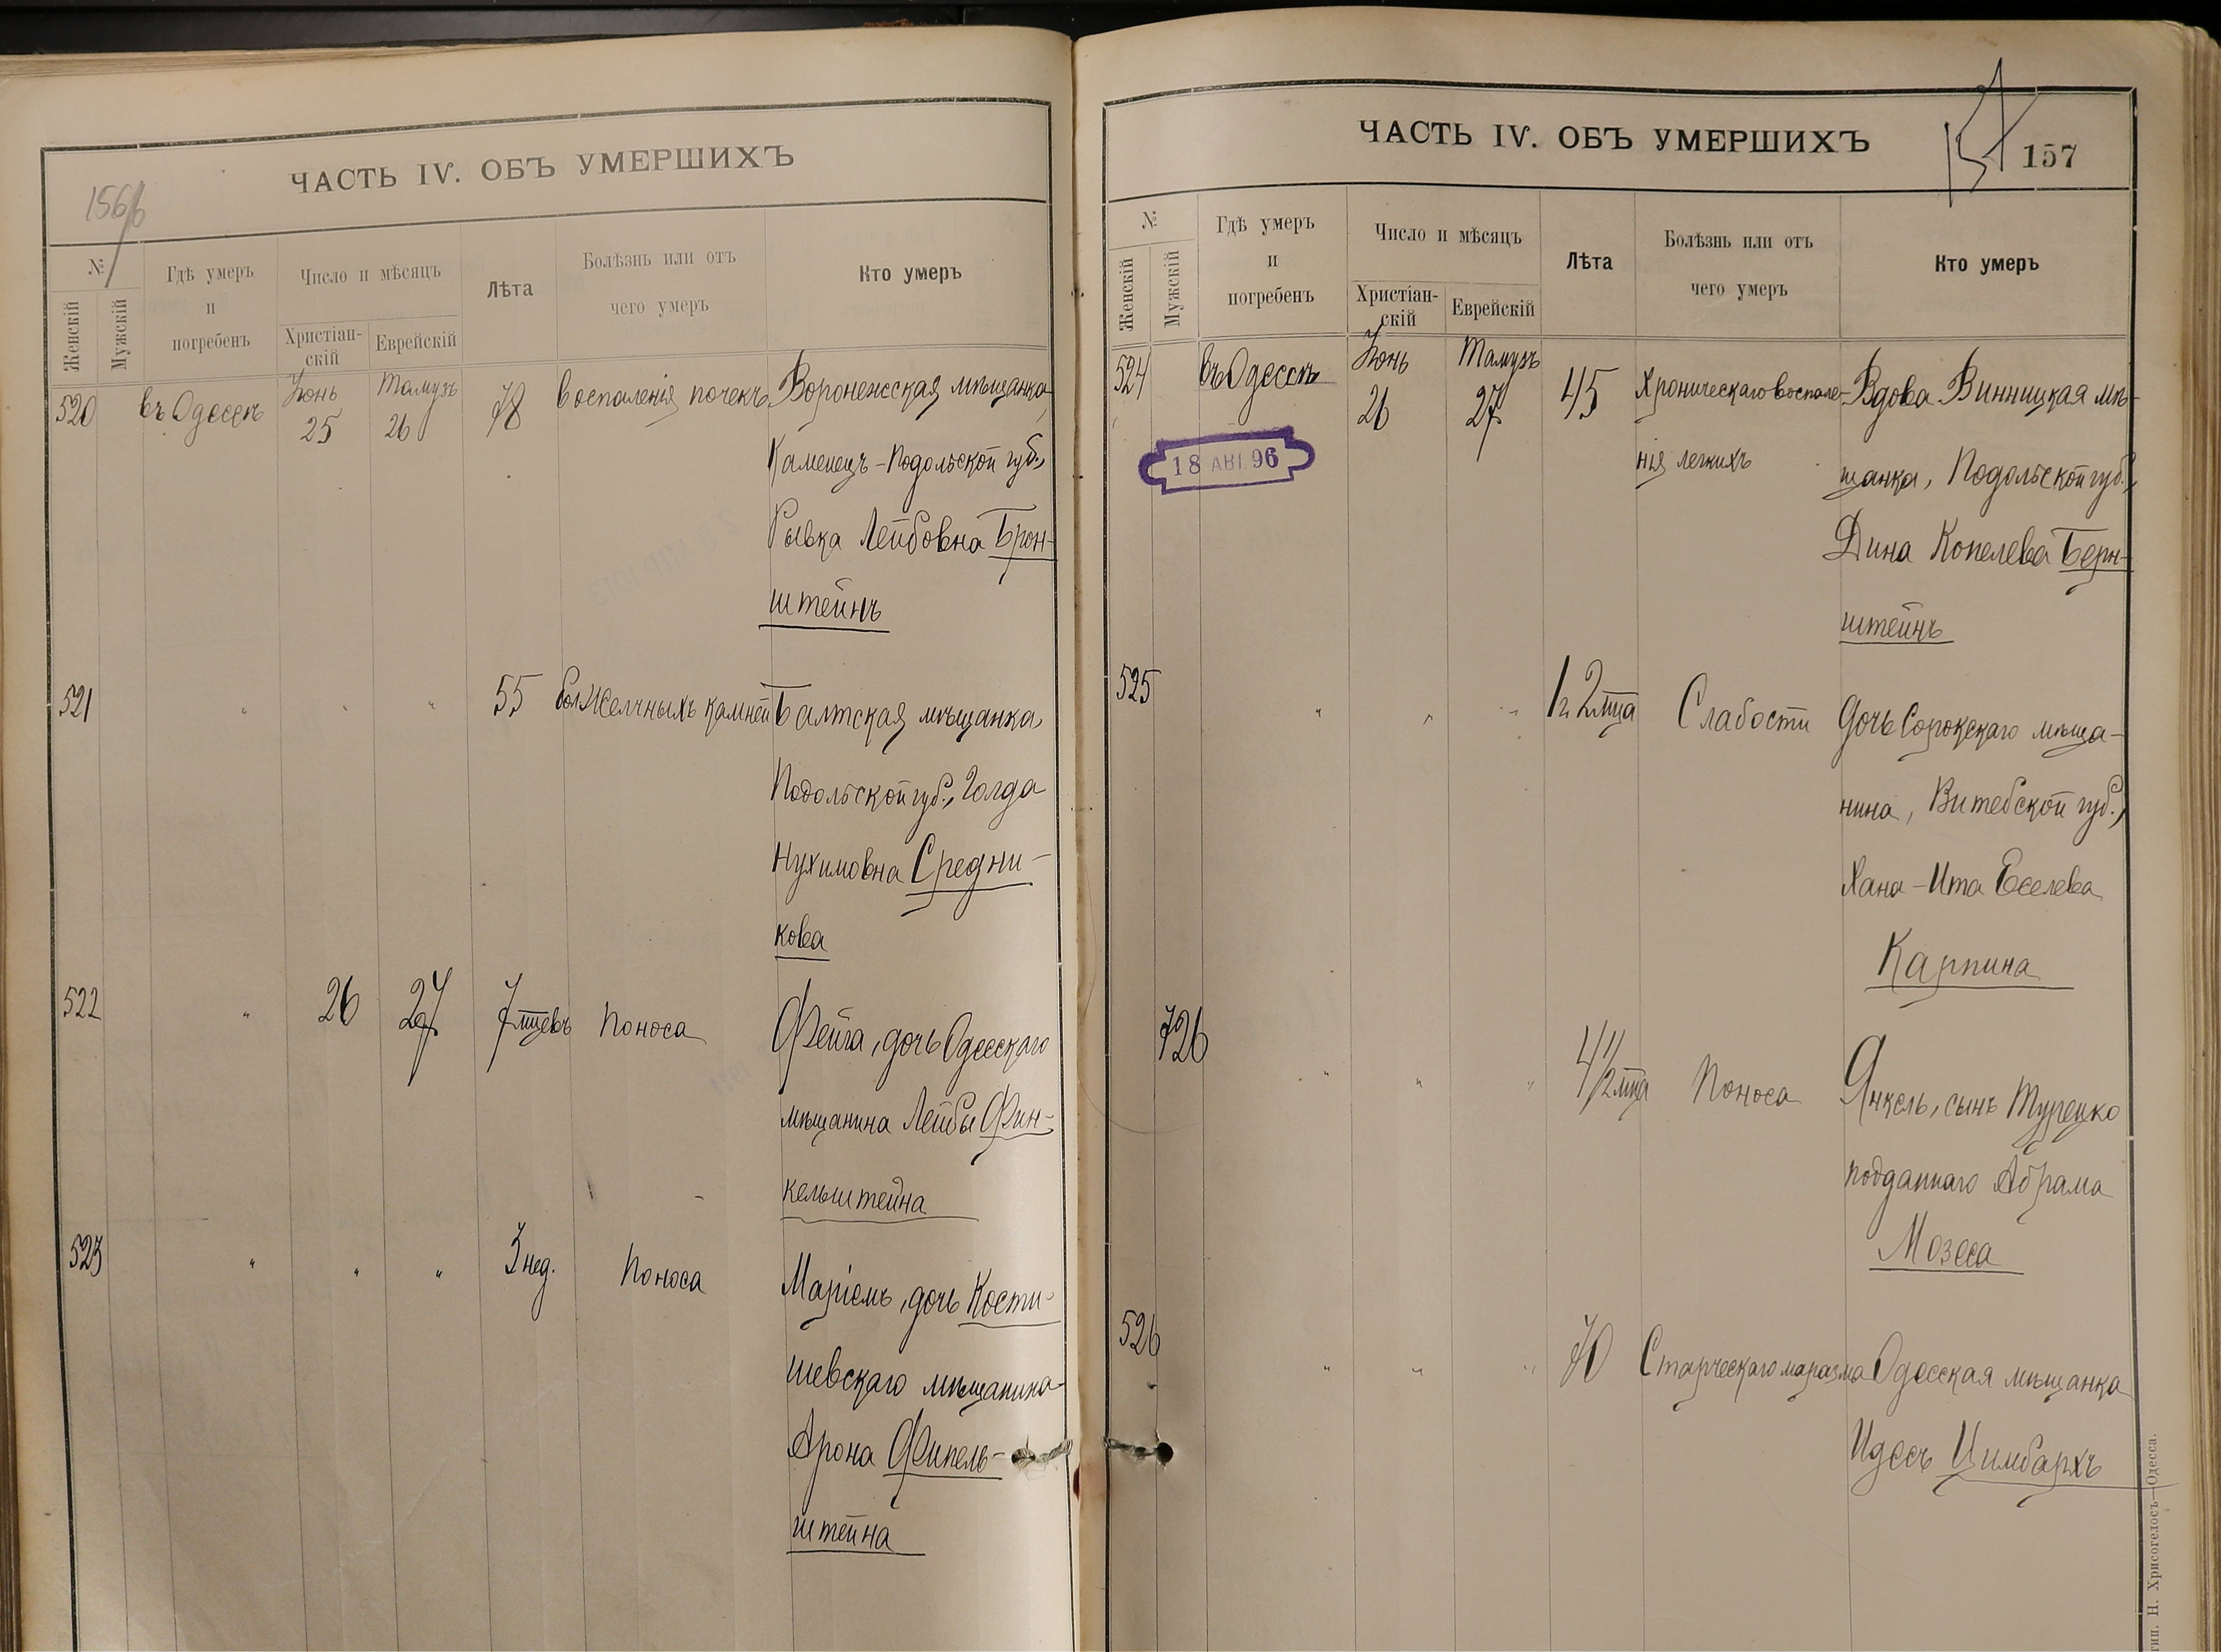 ЧАСТЬ IV. ОБЪ УМЕРШИХЪ
№
Женскій
Мужскій
Гдѣ умеръ
и
погребенъ
Число и мѣсяцъ
Христіан-
скій
Еврейскій
Лѣта
Болѣзнь или отъ
чего умеръ
Кто умеръ
520
въ Одессѣ
Іюнь
25
Тамузъ
26
78
воспаленія почекъ
Воронежская мѣщанка,
Каменецъ-Подольской губ.,
Рывка Лейбовна Брон-
штейнъ
521
" " "
55
бол. желчныхъ камней
Балтская мѣщанка,
Подольской губ., Голда
Нухимовна Средни-
кова
522
"
26
27
7 мцевъ
Поноса
Фейга, дочь Одесскаго
мѣщанина Лейбы Фин-
кельштейна
523
" " "
3 нед.
Поноса
Маріемъ, дочь Кости-
шевскаго мѣщанина
Арона Фипель-
штейна
ЧАСТЬ IV. ОБЪ УМЕРШИХЪ
157
№
Женскій
Мужскій
Гдѣ умеръ
и
погребенъ
Число и мѣсяцъ
Христіан-
скій
Еврейскій
Лѣта
Болѣзнь или отъ
чего умеръ
Кто умеръ
524
въ Одессѣ
Іюнь
26
Тамузъ
27
45
Хроническаго воспале-
нія легкихъ
Вдова Винницкая мѣ-
щанка, Подольской губ.,
Дина Копелева Берн-
штейнъ
18 АВГ. 96
525
" " "
1 г. 2 мца
Слабости
Дочь Сорокскаго мѣща-
нина, Витебской губ.,
Хана-Ита Еселева
Карпина
726
" " "
4 1/2 мца
Поноса
Янкель, сынъ Турецко
подданнаго Абрама
Мозеса
526
" " "
70
Старческаго маразма
Одесская мѣщанка
Идесъ Цимбархъ
тип. Н. Хрисогелосъ—Одесса.